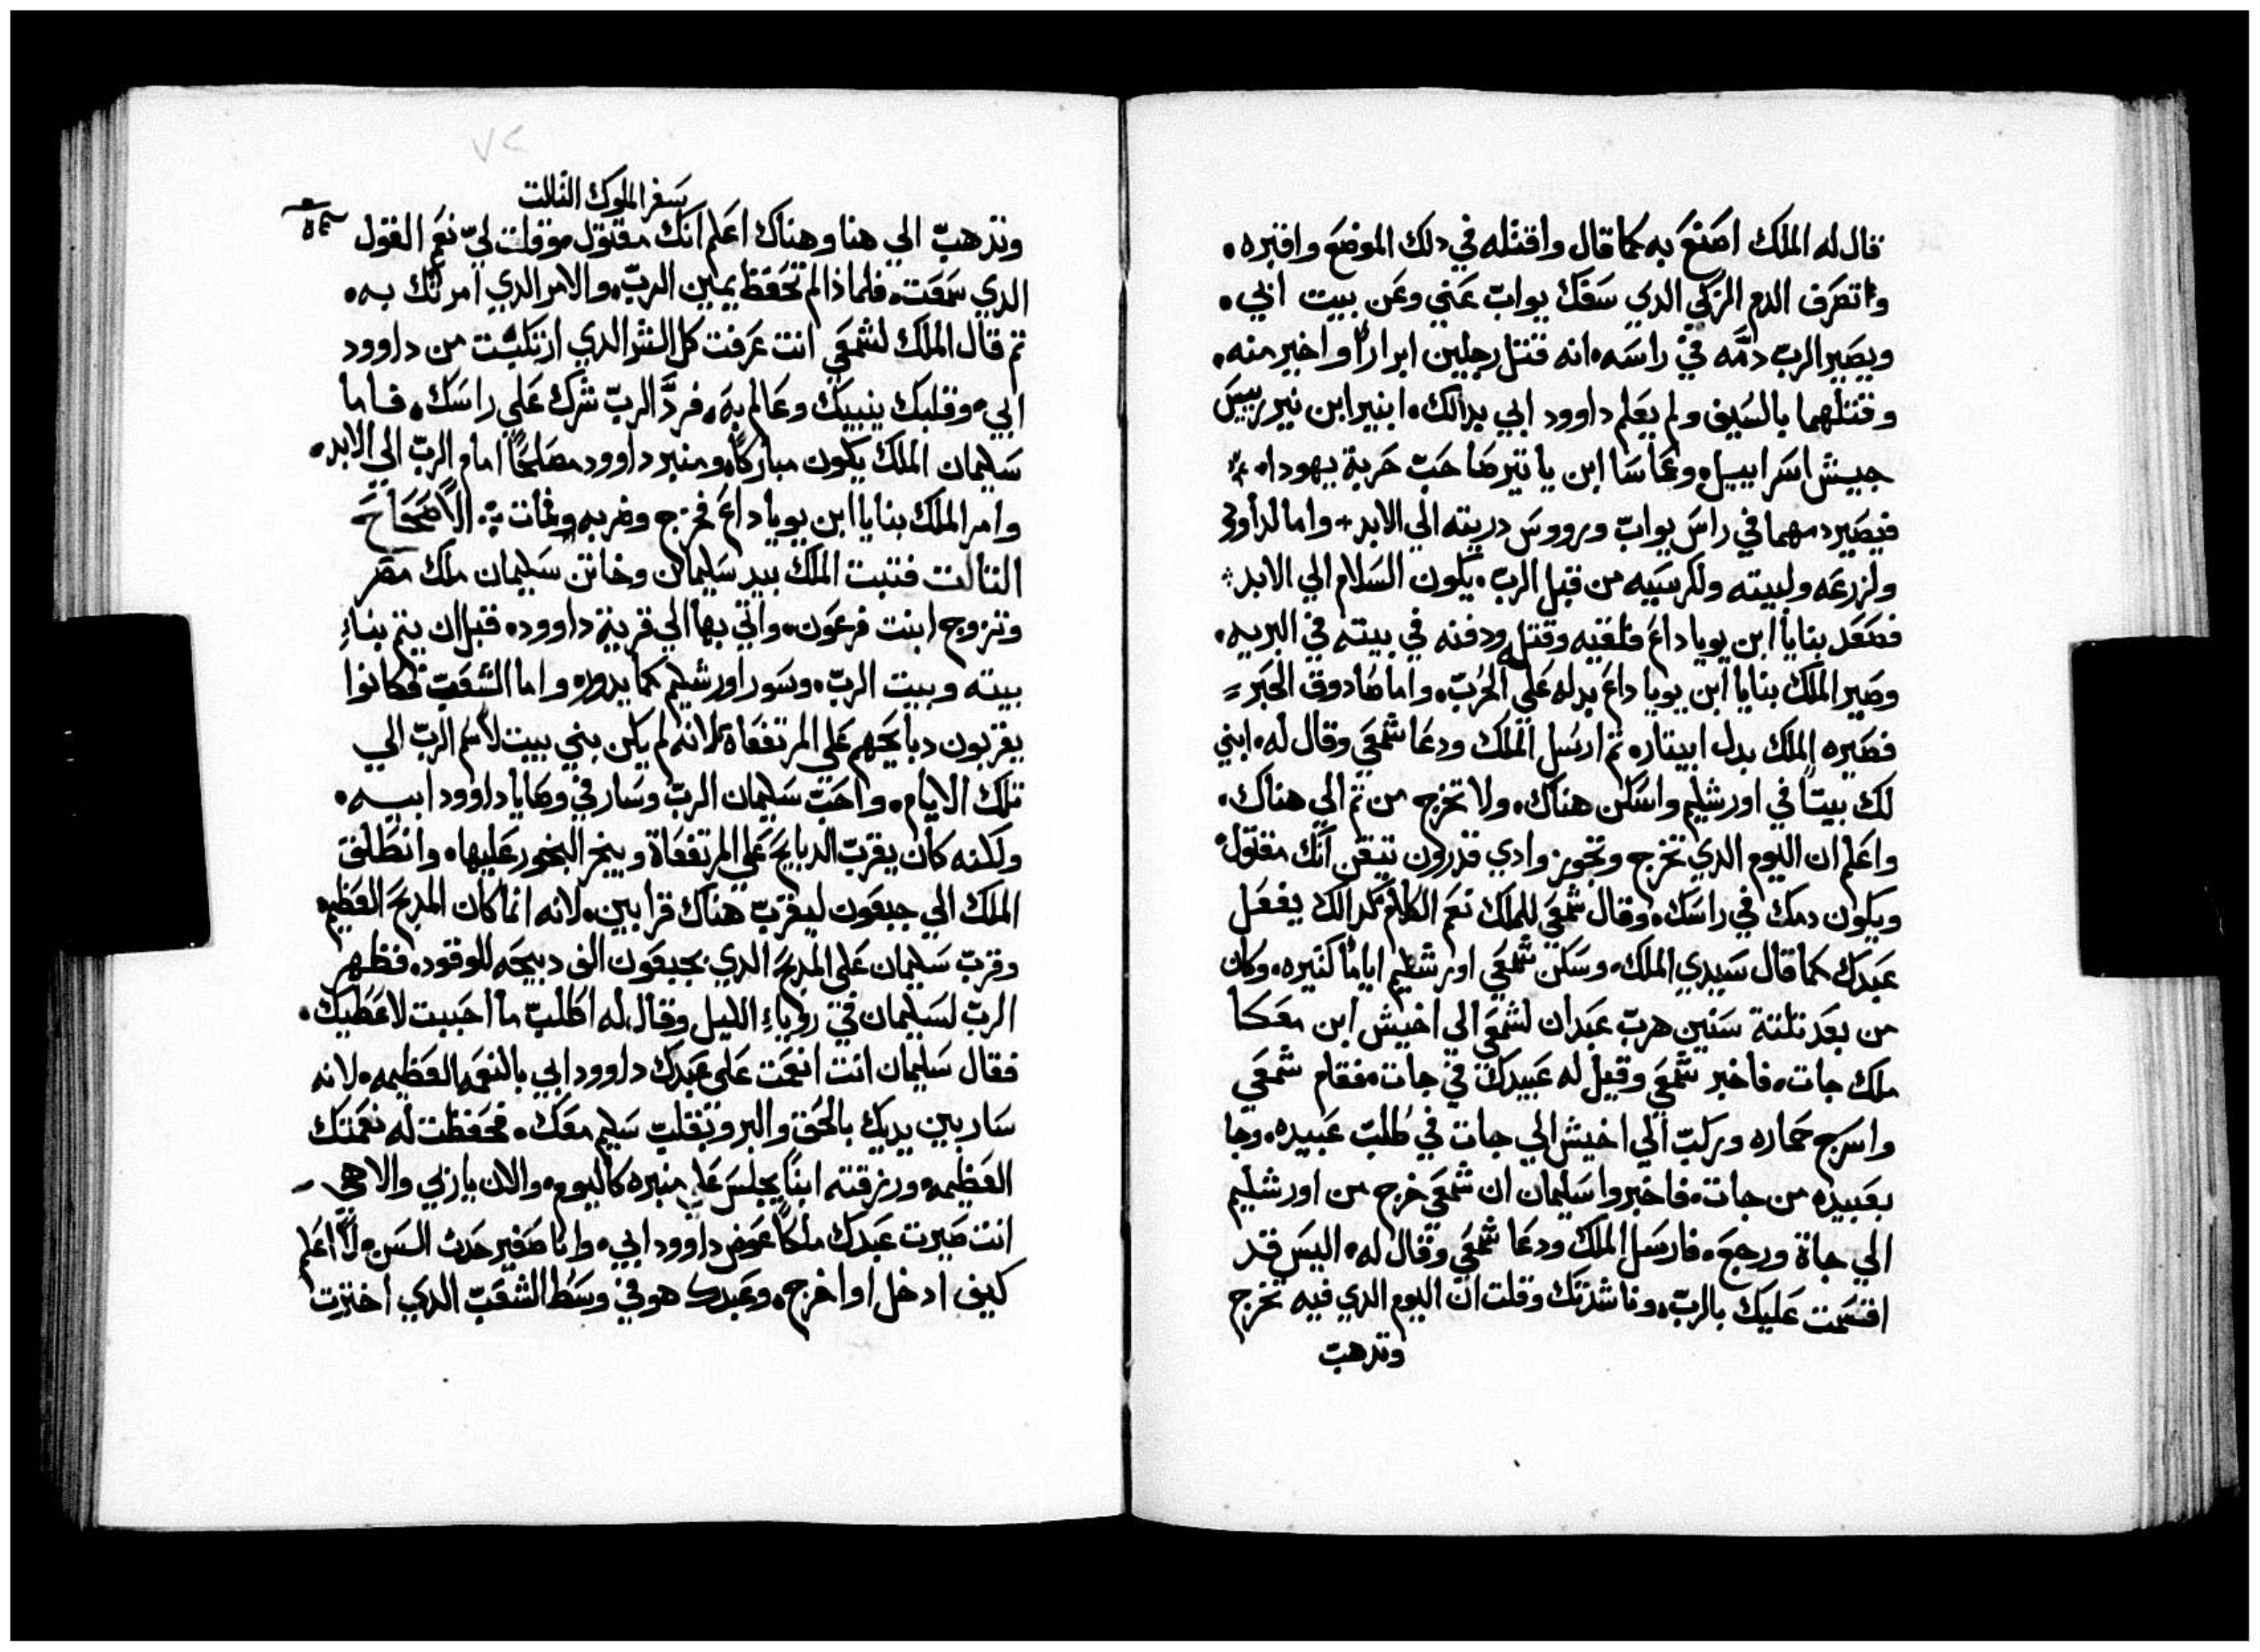 قال له الملك اصنع به كما قال واقتله في دلك الموضع واقبره.
واتصرف الدم الزكي الدي سفك يواب عني وعن بيت ابي.
ويصير الرب دمه في راسه. انه قتل رجلين ابراراً واخير منه.
وقتلهما بالسيف ولم يعلم داوود ابي بدالك. ابنير ابن نير رييس
جيش اسراييل. وعاماسا ابن ياتير صاحب حربة يهودا.
فيصير دمهما في راس يواب ورووس دريته الي الابد + واما لداوود
ولزرعه ولبيته ولكرسيه من قبل الرب. يكون السلام الي الابد
فصعد بنايا ابن يوياداع فلقيه وقتله ودفنه في بيته في البريه.
وصير الملك بنايا ابن يوياداع بدله علي الحرب. واما صادوق الحبر
فصيره الملك بدل ابيتار. تم ارسل الملك ودعا شمعي وقال له. ابني
لك بيتاً في اورشليم واسكن هناك. ولا تخرج من تم الي هناك.
واعلم ان اليوم الدي تخرج وتجوز وادي قدرون تيقن انك مقتول
ويكون دمك في راسك. وقال شمعي للملك نعم الكلام كدالك يفعل
عبدك كما قال سيدي الملك. وسكن شمعي اورشليم اياماً كتيره. وكان
من بعد تلتة سنين هرب عبدان لشمعي الي اخيش ابن معكا
ملك جات. فاخبر شمعي وقيل له عبيدك في جات. فقام شمعي
واسرج حماره وركب الي اخيش الي جات في طلب عبيده. وجا
بعبيده من جات. فاخبروا سليمان ان شمعي خرج من اورشليم
الي جاة ورجع. فارسل الملك ودعا شمعي وقال له. اليس قد
اقسمت عليك بالرب. وناشدتك وقلت ان اليوم الدي فيه تخرج
وتدهب
٧٢
سفر الملوك التالت
وتدهب الي هنا وهناك اعلم انك مقتول. وقلت لي نعم القول
الدي سمعت. فلماذا لم تحفظ يمين الرب. والامر الدي امرتك به.
تم قال الملك لشمعي انت عرفت كل الشر الدي ارتكبت من داوود
ابي. وقلبك ينبيك وعالم به. فردّ الرب شرك علي راسك. فاما
سليمان الملك يكون مباركاً. ومنبر داوود مصلحاً امام الرب الي الابد.
وامر الملك بنايا ابن يوياداع فخرج وضربه ومات الاصحاح
التالت فتبت الملك بيد سليمان وخاتن سليمان ملك مصر
وتزوج ابنت فرعون. واتي بها الي قرية داوود. قبل ان يتم بناء
بيته وبيت الرب. وسور اورشليم كما يدور. واما الشعب فكانوا
يقربون دبايحهم علي المرتفعاة. لانه لم يكن بني بيت لاسم الرب الي
تلك الايام. واحب سليمان الرب وسار في وصايا داوود ابيه.
ولكنه كان يقرب الدبايح علي المرتفعاة ويبخر البخور عليها. وانطلق
الملك الي جبعون ليقرب هناك قرابين. لانه انما كان المدبح العظيم
وقرب سليمان علي المدبح الدي بجبعون الف دبيحه للوقود. فظهر
الرب لسليمان في روياء الليل وقال له اطلب ما احببت لاعطيك.
فقال سليمان انت انعمت علي عبدك داوود ابي بالنعمه العظيمه. لانه
سار بين يديك بالحق والبر وبقلب سليم معك. فحفظت له نعمتك
العظيمه. ورزقته ابناً يجلس علي منبره كاليوم. والان ياربي والاهي
انت صيرت عبدك ملكاً عوض داوود ابي. وانا صغير حدث السن. لا اعلم
كيف ادخل او اخرج. وعبدك هو في وسط الشعب الدي اخترت